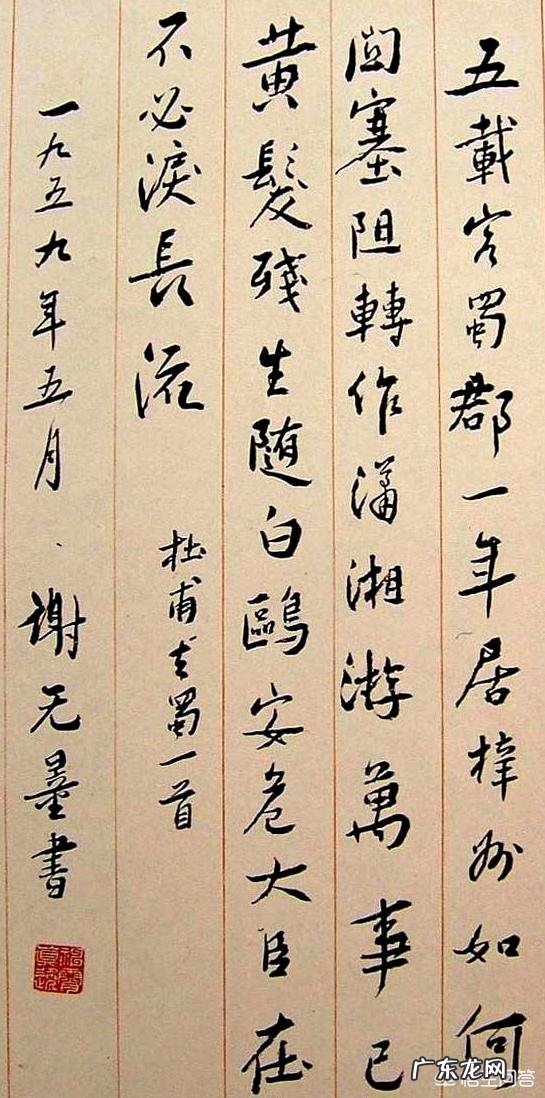 五載客蜀郡一年居梓州如何
関塞阻轉作瀟湘游萬事已
黄髮殘生随白鷗安危大臣在
不必淚長流
杜甫去蜀一首
一九五九年五月、謝无量書
广东龙网